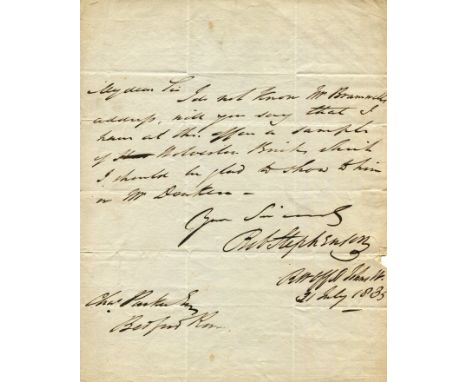 My dear Sir
I do not know Mr Bramwells
address, will you say that I
have at this office a sample
of Wolvester Bricks which
I should be glad to show to him
or Mr Donkin –
Your Sincerely
Rob Stephenson
31 July 1835
Chas Parker Esq
Bedford Row